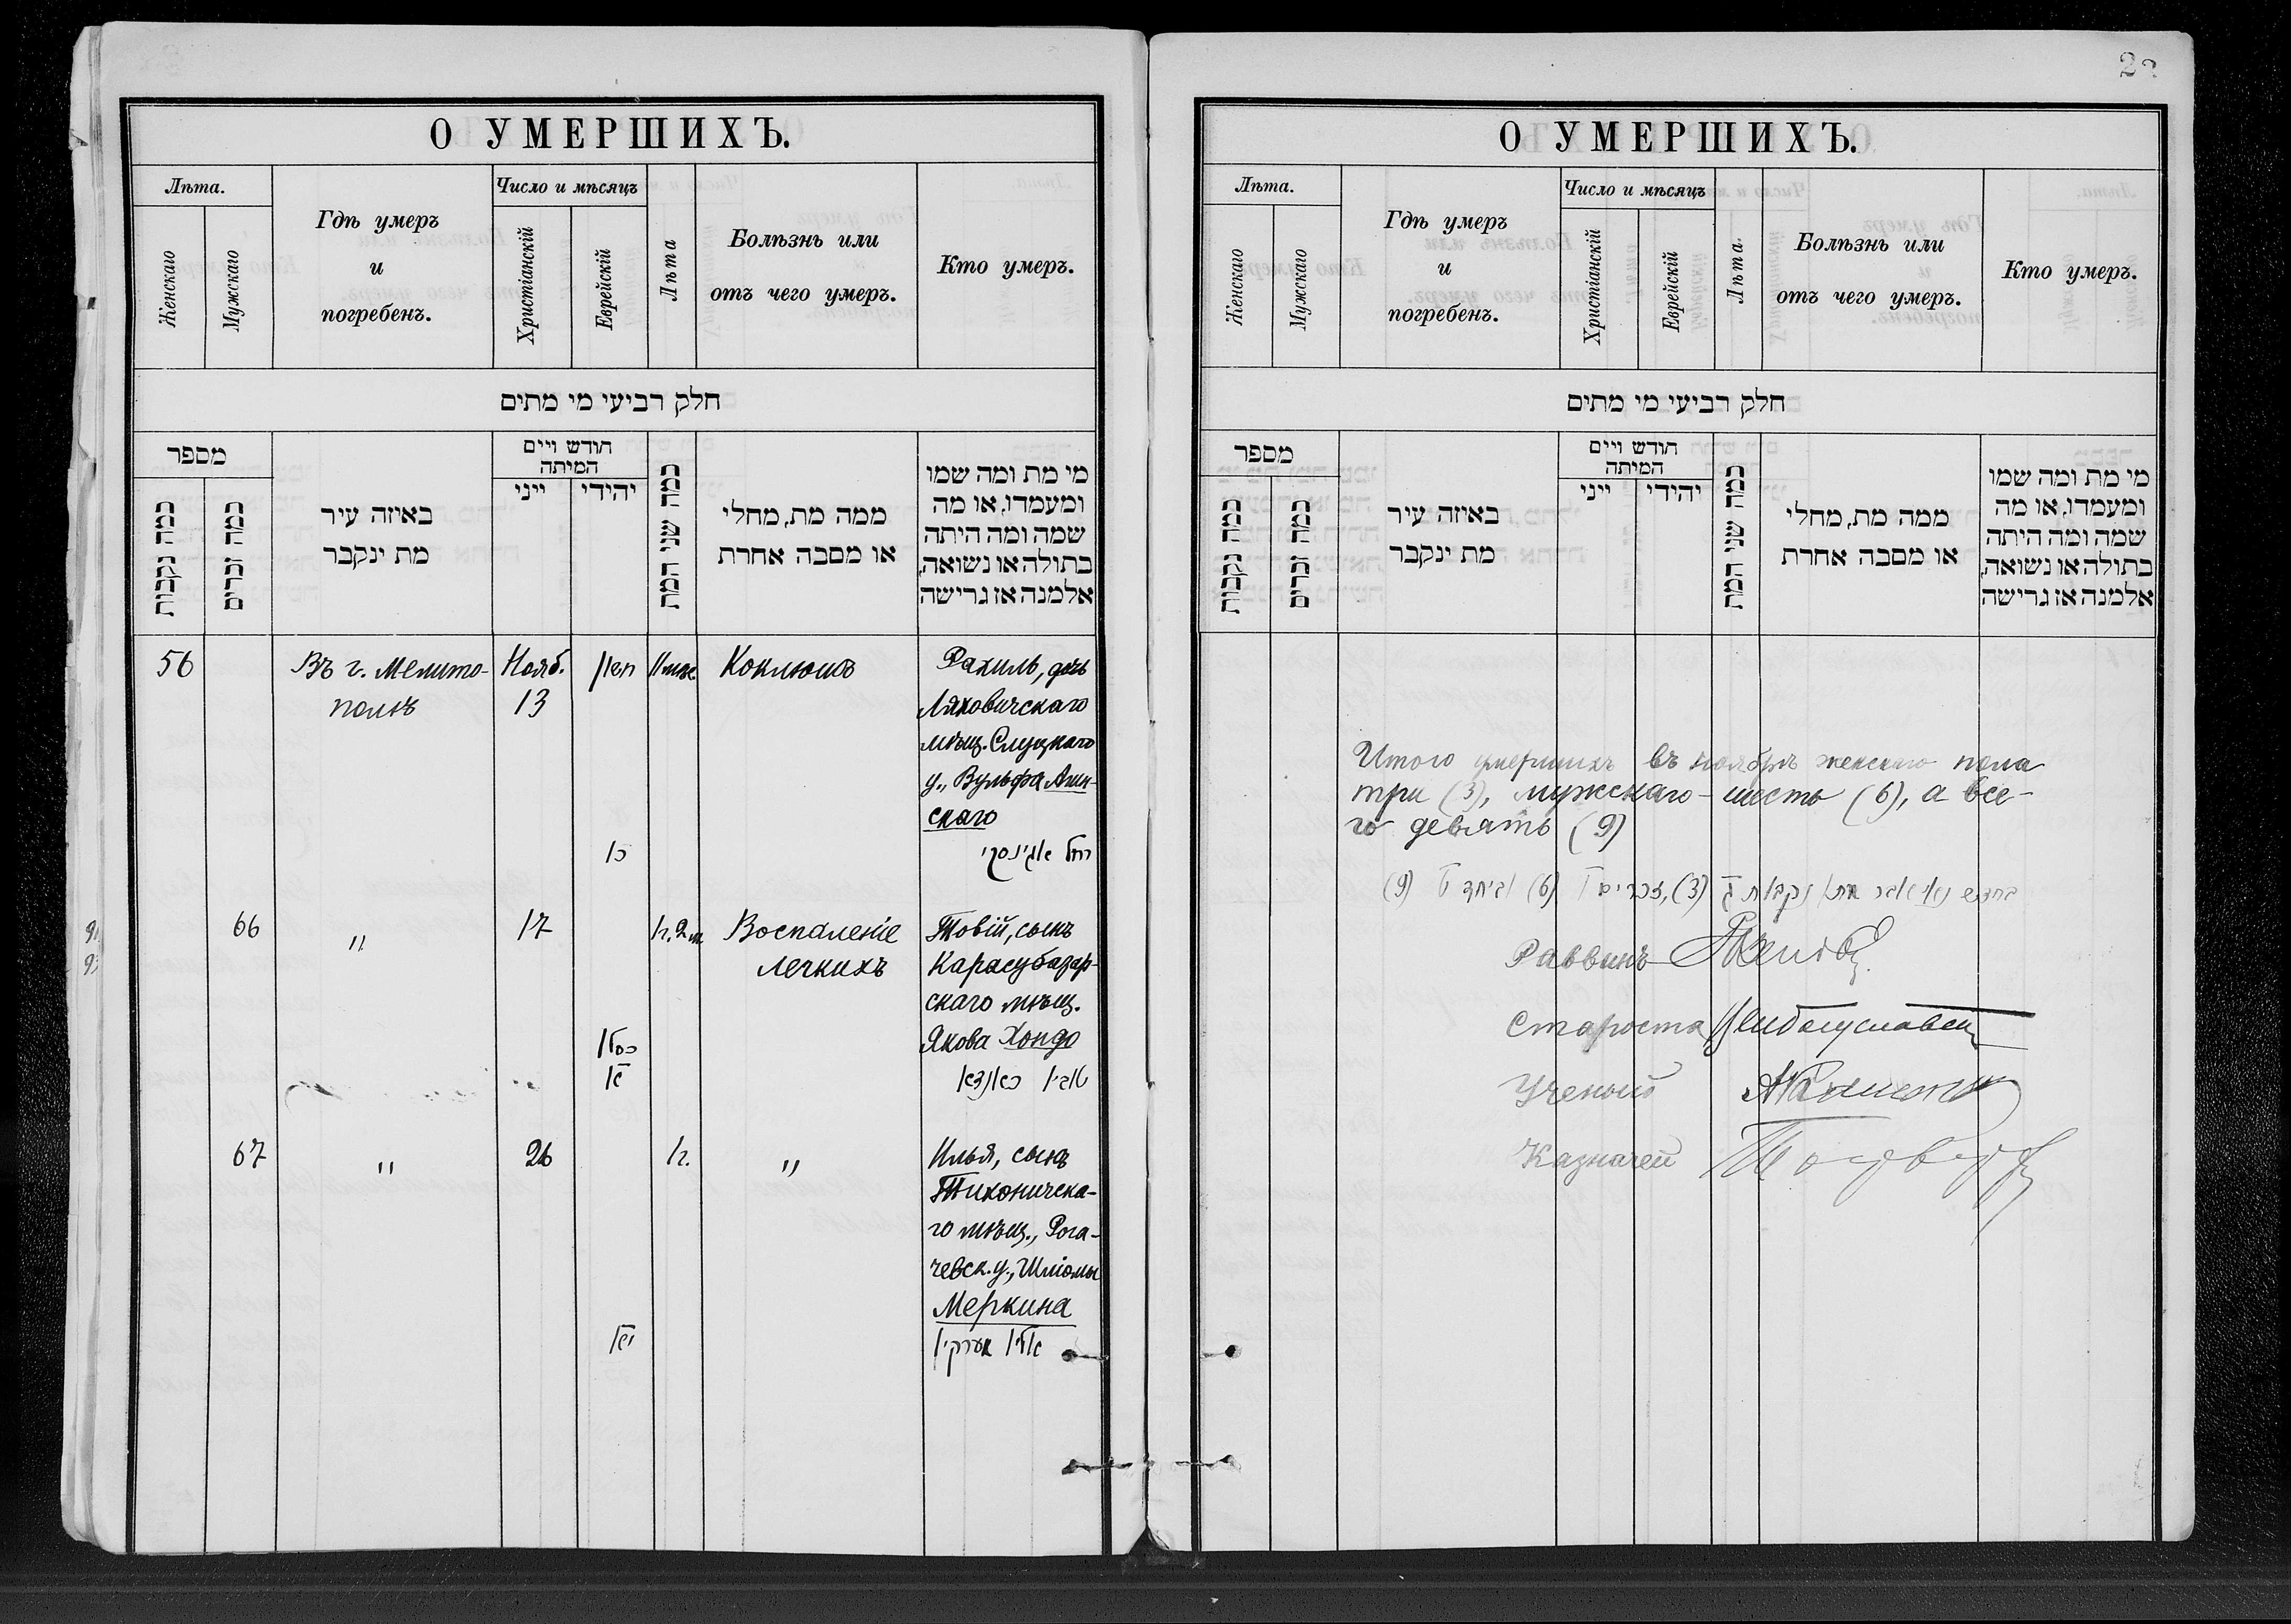 О УМЕРШИХЪ.
Лѣта.
Женскаго
Мужскаго
Гдѣ умеръ
и
погребенъ.
Число и мѣсяцъ
Христіанскій
Еврейскій
Лѣта
Болѣзнь или
отъ чего умеръ.
Кто умеръ.
חלק רביעי מי מתים
מספר
כמה נקבות
כמה זכרים
באיזה עיר
מת ינקבר
חודש ויים
המיתה
ייני
יהודי
כמה שני המת
ממה מת, מחלי
או מסבה אחרת
מי מת ומה שמו
ומעמדו, או מה
שמה ומה היתה
בתולה או נשואה,
אלמנה אז גרישה
56
Въ г. Мелито-
полѣ
Нояб.
13
חשון
11 мѣс
Коклюшъ
Рахиль, дочь
Ляховичскаго
мѣщ. Слуцкаго
у., Вульфа Агин-
скаго
כו
רחל אגינסקי
66
"
17
1 г. 2 м.
Воспаленіе
легкихъ
Товій, сынъ
Карасубазар-
скаго мѣщ.
Якова Хондо
כסלו
טוביו כאנדאו
67
"
26
1 г.
"
Илья, сынъ
Тихоничска-
го мѣщ., Рога-
чевск. у., Шлiомы
Меркина
אליו מערקין
22
О УМЕРШИХЪ.
Лѣта.
Женскаго
Мужскаго
Гдѣ умеръ
и
погребенъ.
Число и мѣсяцъ
Христіанскій
Еврейскій
Лѣта.
Болѣзнь или
отъ чего умеръ.
Кто умеръ.
חלק רביעי מי מתים
מספר
כמה נקבות
כמה זכרים
באיזה עיר
מת ינקבר
חודש ויים
המיתה
ייני
יהודי
כמה שני המת
ממה מת, מחלי
או מסבה אחרת
מי מת ומה שמו
ומעמדו, או מה
שמה ומה היתה
בתולה או נשואה,
אלמנה אז גרישה
Итого умершихъ въ ноябрѣ женскаго пола
три (3), мужскаго - шесть (6), а все-
го девять (9)
בחדש נאיאבר מתו נקבות ג (3), זכרים ו (6) וביחד ט (9)
Раввинъ
Староста
Ученый
Казначей